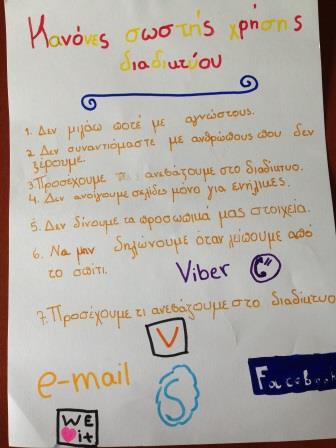 Κανόνες σωστής χρήσης
διαδικτύου
1. Δεν μιλάω ποτέ με αγνώστους.
2. Δεν συναντιόμαστε με ανθρώπους που δεν
ξέρουμε.
3. Προσέχουμε τι ανεβάζουμε στο διαδίκτυο.
4. Δεν ανοίγουμε σελίδες μόνο για ενήλικες.
5. Δεν δίνουμε τα προσωπικά μας στοιχεία.
6. Να μην δηλώνουμε όταν λείπουμε από
το σπίτι.
Viber
7. Προσέχουμε τι ανεβάζουμε στο διαδίκτυο
V
e-mail
S
Facebook
WE
it